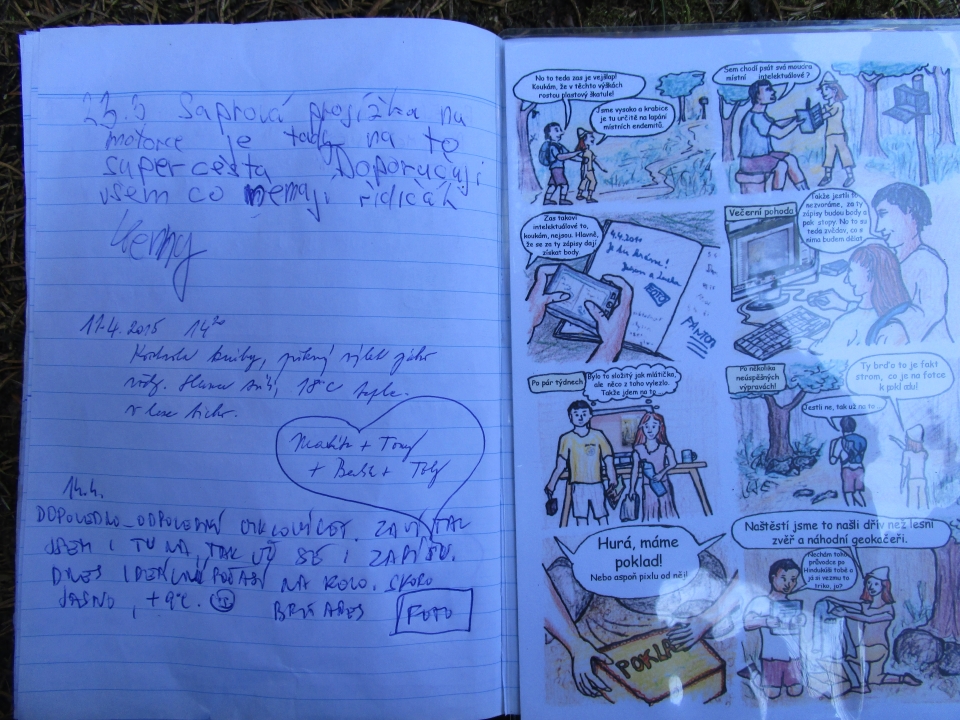 23.5 Saprová projížka na
motorce je tady na té
super cesta Doporučuji
všem co nemaji řidičák
11.4.2015 14²⁰
Kontrola knihy, pěkný výlet
18°C teplo.
v lese ticho.
+ Tony
+
14.4.
DOPOLEDNO-ODPOLEDNÍ CYKLOVÝLET. ZAVÍTAL
JSEM I TU NA, TAK UŽ SE I ZAPÍŠU.
DNES IDEÁLNÍ POČASÍ NA KOLO. SKORO
JASNO, +9°C.
FOTO
No to teda zas je vejšlap!
Koukám, že v těchto výškách
rostou plastový škatule!
Jsme vysoko a krabice
je tu určitě na lapání
místních endemitů.
Sem chodí psát svá moudra
místní intelektuálové ?
Zas takoví
intelektuálové to,
koukám, nejsou. Hlavně,
že se za ty zápisy dají
získat body.
4.4.2011
Večerní pohoda
Takže jestli to
nezvoráme, za ty
zápisy budou body a
pak stopy. No to su
teda zvědav, co s
nima budem dělat.
Po pár týdnech
Bylo to složitý jak mlátička,
ale něco z toho vylezlo.
Takže jdem na to
Po několika
neúspěšných
výpravách!
Jestli ne, tak už na to
Ty brďo to je fakt
strom, co je na fotce
k pokladu!
Hurá, máme
poklad!
Nebo aspoň pixlu od něj!
POKLAD
Naštěstí jsme to našli dřív než lesní
zvěř a náhodní geokačeři.
Nechám toho
průvodce po
Hindúkúši tobě a
já si vezmu to
triko, jo?